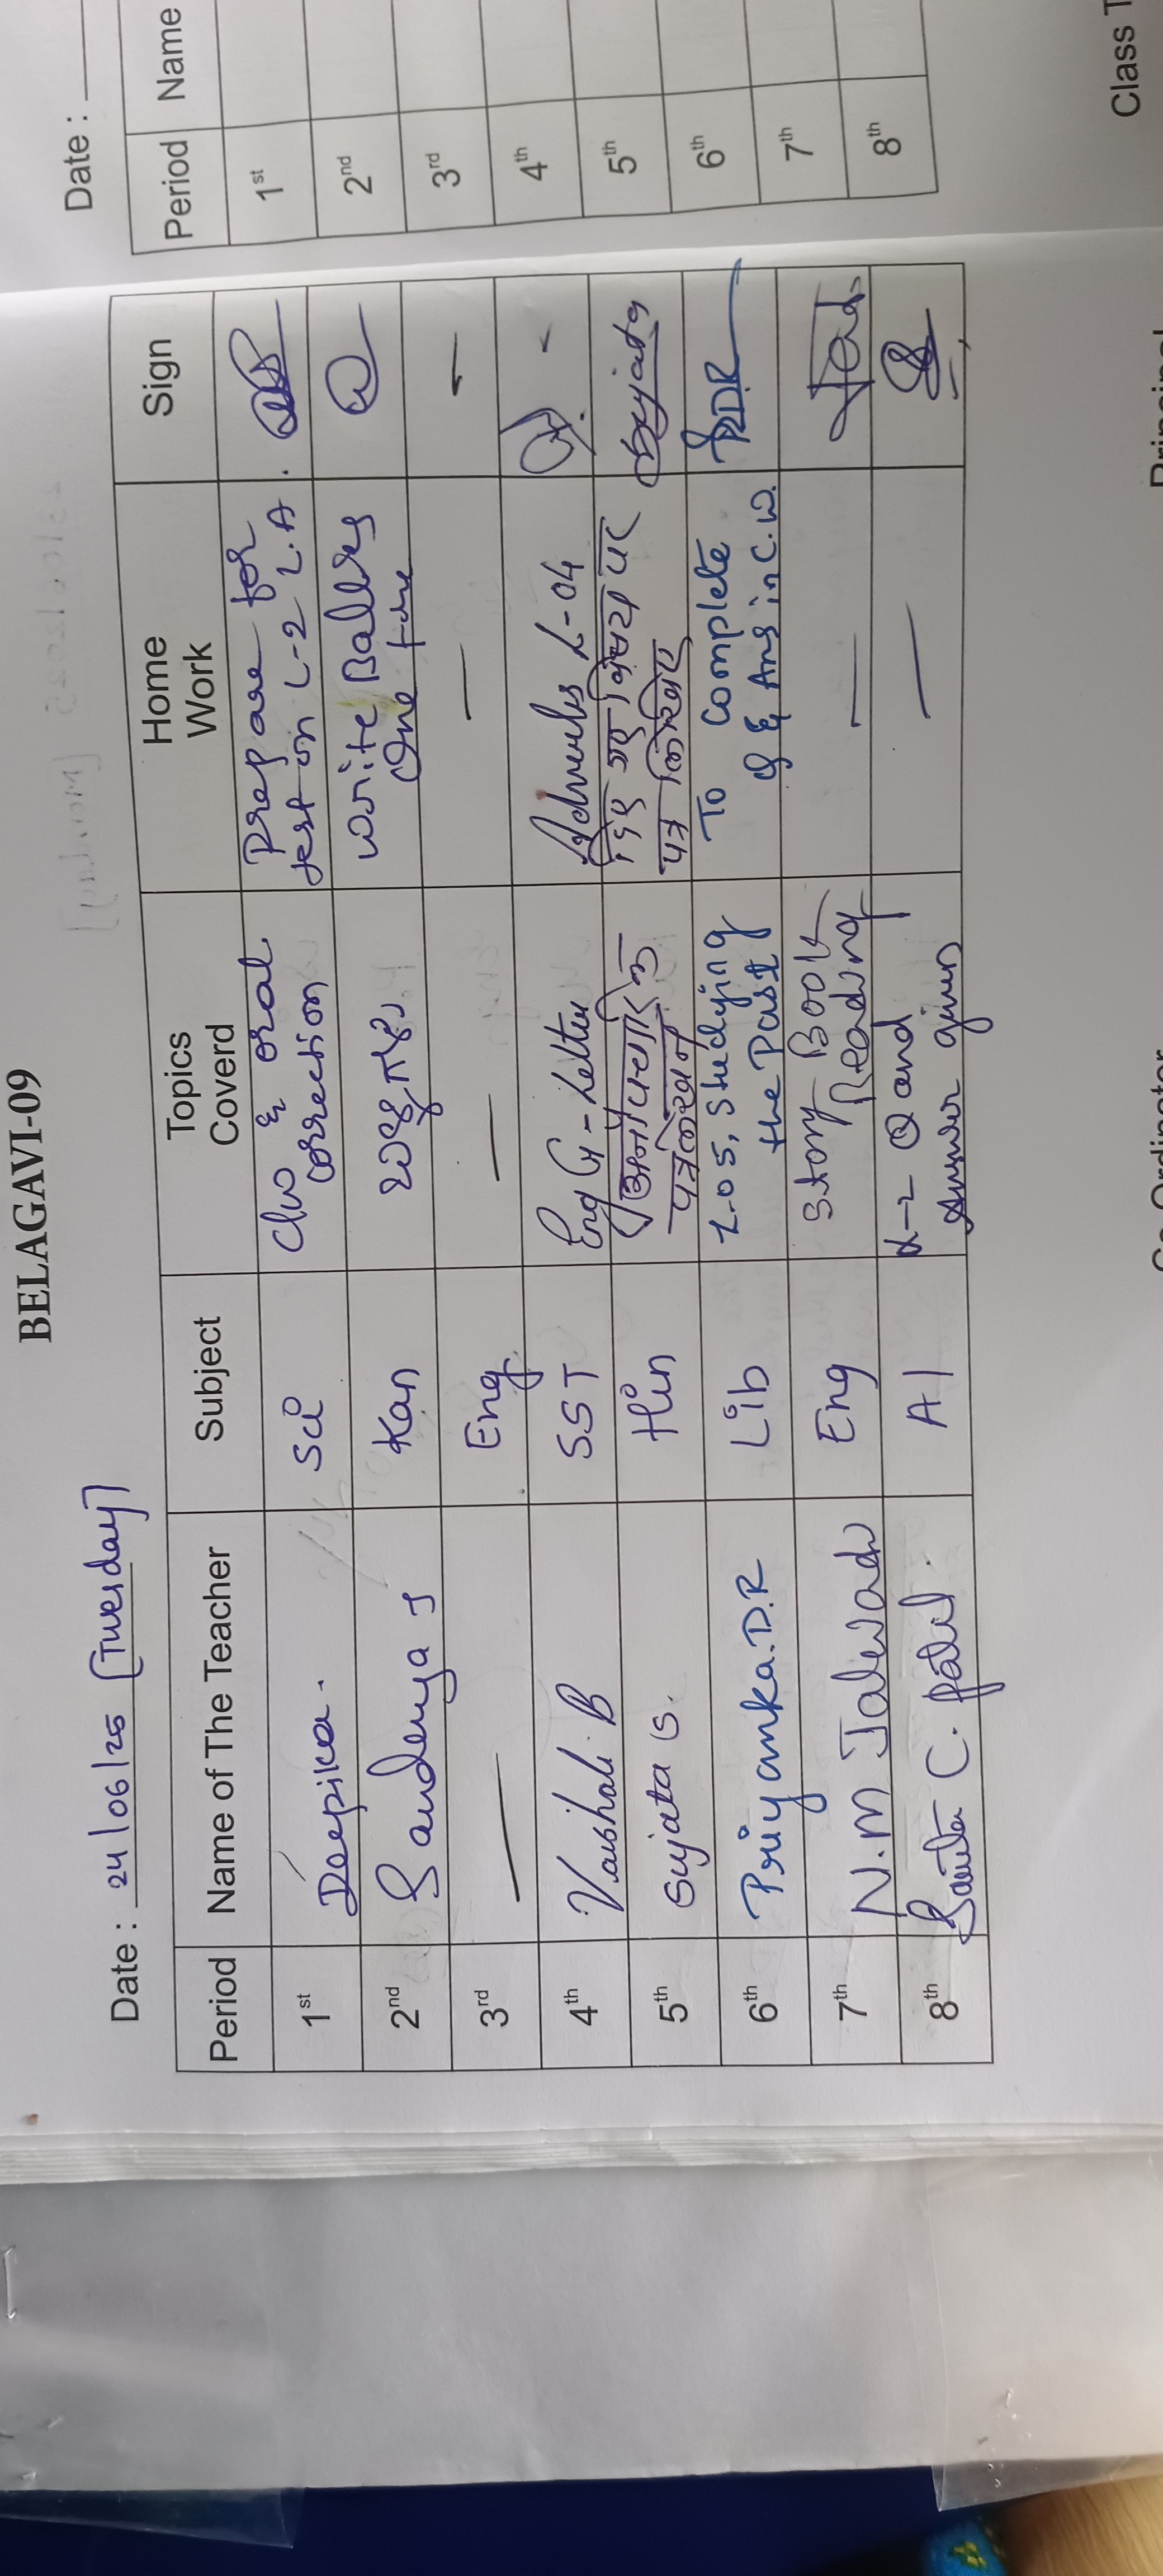 BELAGAVI-09
Date : 24/06/25 [Tuesday]
Period Name of The Teacher Subject Topics Coverd Home Work Sign
1st Deepika. Sci C/w & oral correction Prepare for test on L-2 L.A.
2nd Sandhya J Kan ಬಳ್ಳಿಗಳು write one
3rd — Eng. — — —
4th Vaishali B SST Eng G-Letter Adverbs L-04
5th Sujata S. Hin अनौपचारिक पत्रलेखन दिए गए विषय पर पत्र लिखिए Sujata
6th Priyanka.D.R Lib L-05, Studying the Past To Complete Q & Ans in C.W. PDR
7th N.M Jalewadi Eng Story Book Reading —
8th C. Patil. AI L-2 Q and Answer given —
Date :
Period Name
1st
2nd
3rd
4th
5th
6th
7th
8th
Co-Ordinator
Principal
Class T